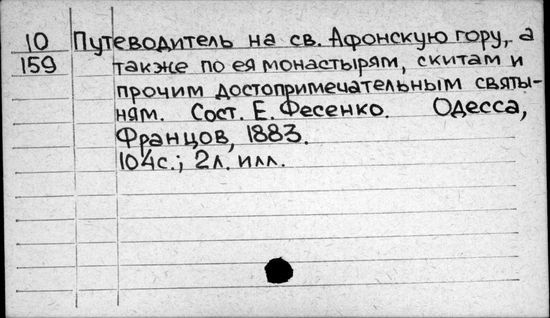 10 Путеводитель на св. Афонскую гору, а
159 также по ея монастырям, скитам и
прочим достопримечательным святы-
ням. Сост. Е. Фесенко. Одесса,
Францов, 1883.
104с.; 2л. илл.